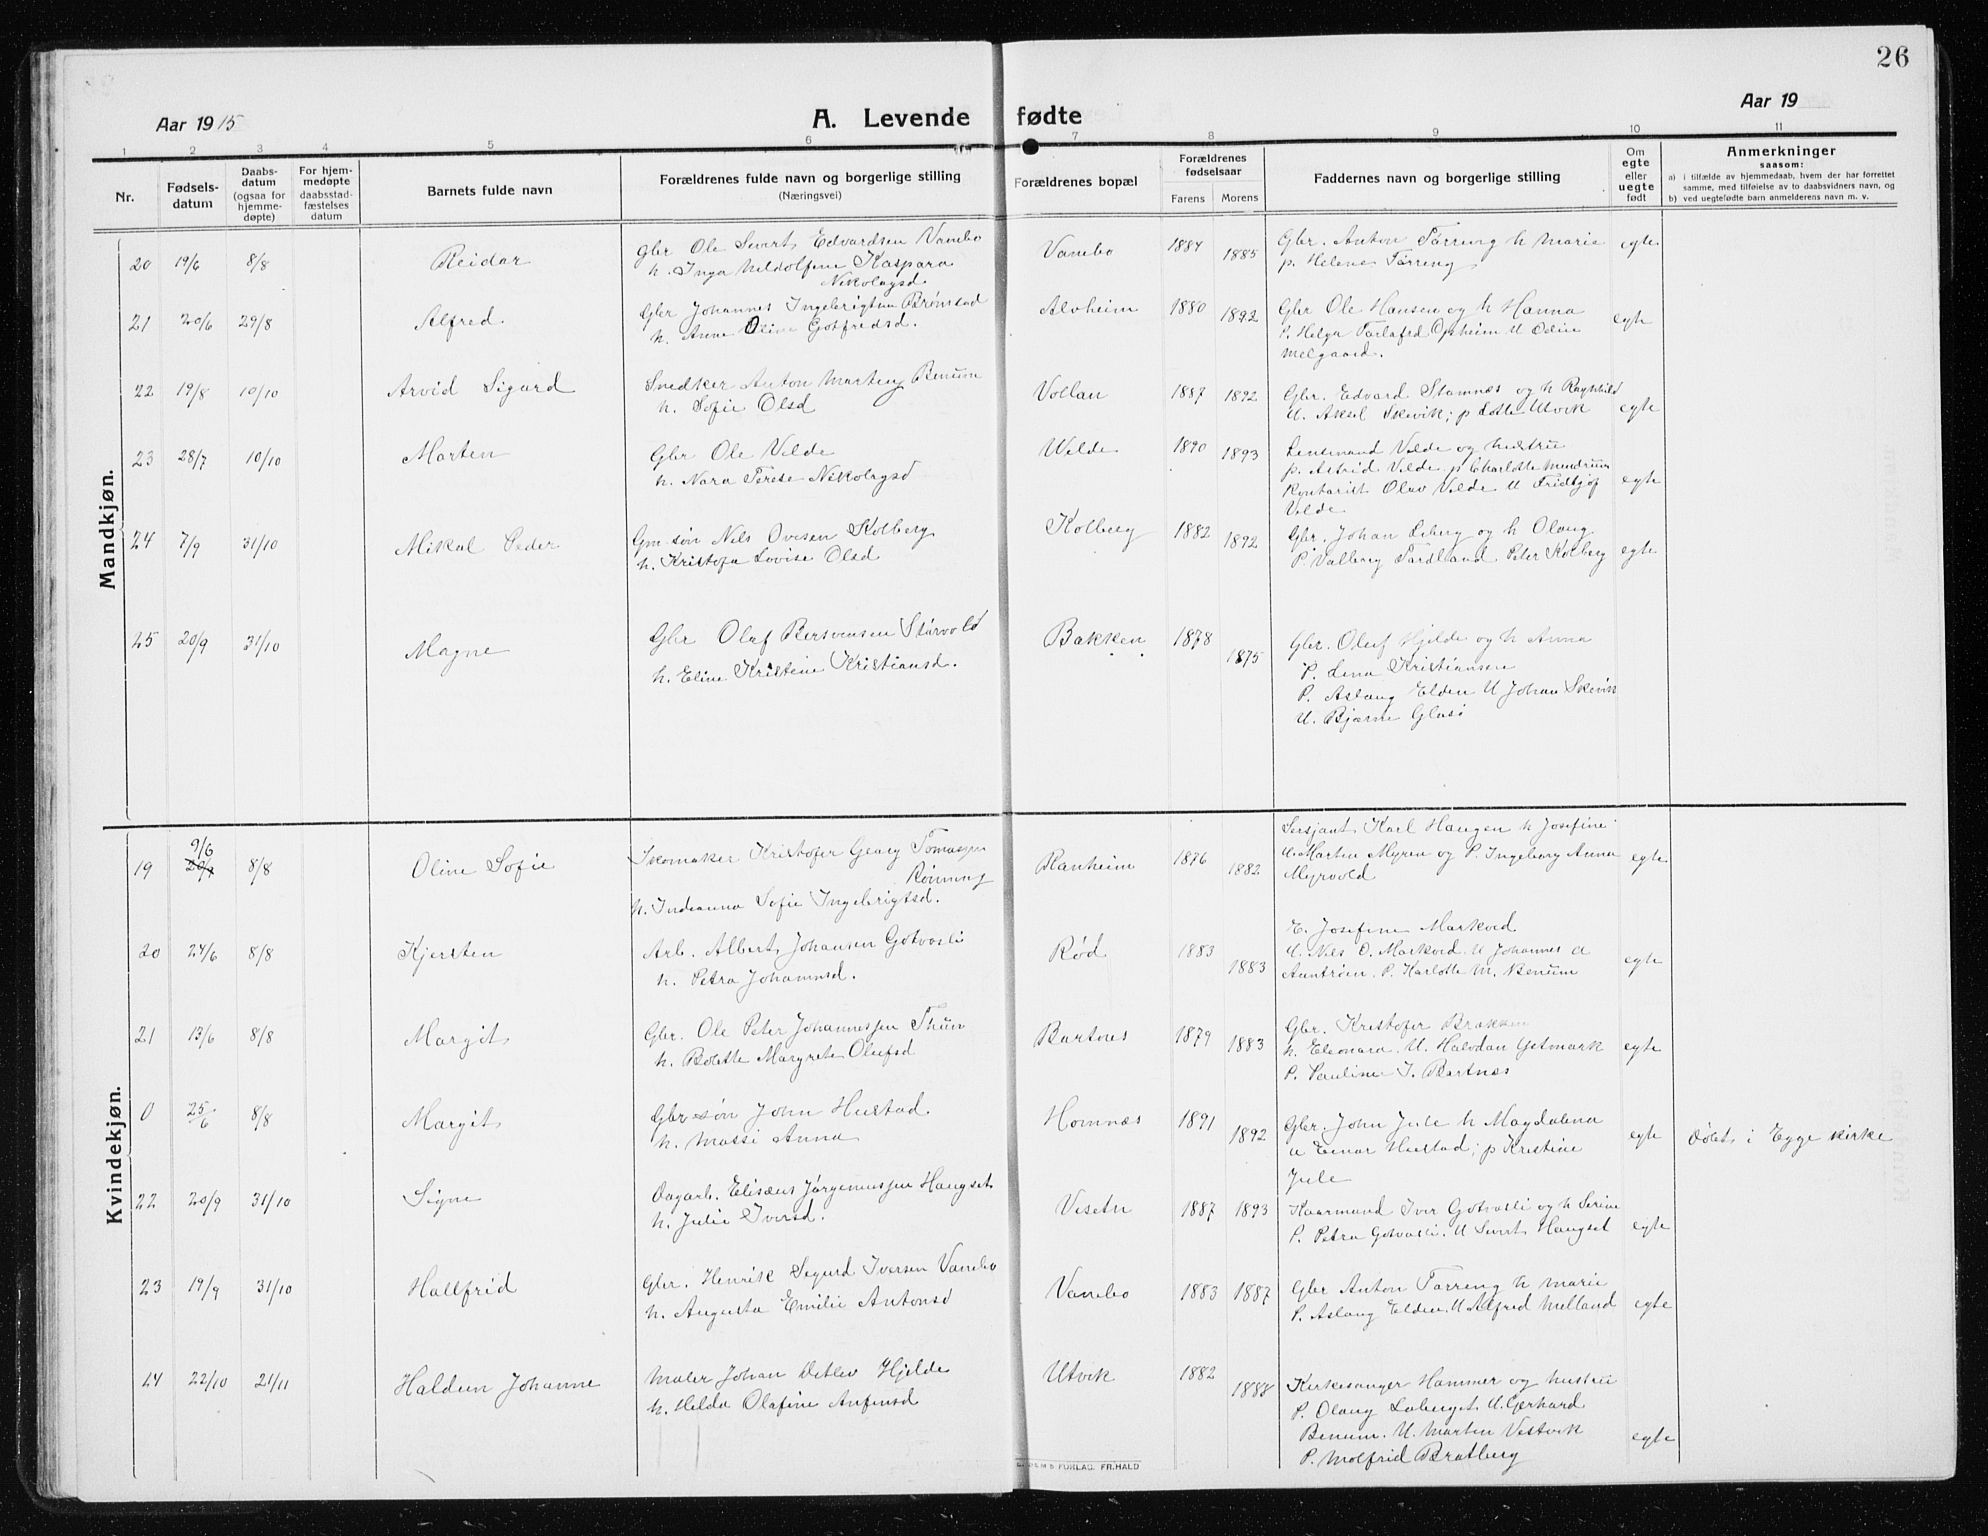 26
Aar 1915
A. Levende fødte
Aar 19
1 2 3 4 5 6 7 8 9 10 11
Nr.
Fødsels-
datum
Daabs-
datum
(ogsaa for
hjemme-
døpte)
For hjem-
medøpte
daabsstad-
fæstelses
datum
Barnets fulde navn
Forældrenes fulde navn og borgerlige stilling
(Næringsvei)
Forældrenes bopæl
Forældrenes
fødselsaar
Farens Morens
Faddernes navn og borgerlige stilling
Om
egte
eller
uegte
født
Anmerkninger
saasom:
a) i tilfælde av hjemmedaab, hvem der har forrettet
samme, med tilføielse av to daabsvidners navn, og
b) ved uegtefødte barn anmelderens navn m. v.
Mandkjøn.
20 19/6 8/8 Reidar
Gbr Ole Severt Edvardsen Vanebo
h. Inga Meldolfine Kaspara
Nikolaysd
Vanebo 1884 1885
Gbr. Anton Tørreng h Marie
p. Helene Tørreng
egte
21 20/6 29/8 Alfred
Gbr Johannes Ingebrigtsen Brønstad
h. Anne Oline Gotfredsd.
Alvheim 1880 1892
Gbr Ole Hansen og h Hanna
P. Helga Opheim U Odin
Melgaard.
egte
22 19/8 10/10 Arvid Sigurd
Snedker Anton Marting Benum
h. Sofie Olsd
Vollan 1887 1892
Gbr. Edvard Stamnes og h Ragnhild
U. Aksel Skevik; p Lotte Utvik
egte
23 28/7 10/10 Morten
Gbr Ole Velde
h. Nora Terese Nikolaysd
Welde 1890 1893
Lensmand Velde og hustru
p. Astrid Velde p Charlotte Mendrum
Kontorist Olav Velde U Fridtjof
Velde
egte
24 7/9 31/10 Mikal Peder
Gm søn Nils Ovesen Kolberg
h. Kristofa Lovise Olsd
Kolberg 1882 1892
Gbr. Johan Leberg og h Olaug
P. Valborg Peter Kolberg
egte
25 20/9 31/10 Magne
Gbr Oluf Bersvensen Størvold
h. Eline Kristine Kristiansd.
Bakken 1878 1875
Gbr. Oluf Hjelde og h Anna
P. Lena Kristiansen
P. Aslaug Elden U Johan Skevik
U. Bjarne Glasø
Kvindekjøn.
19 9/6 20/7 8/8 Oline Sofie
Skomaker Kristofer Georg Tomassen
Rønning
h. Indianna Sofie Ingebrigtsd.
Ranheim 1876 1882
Sersjant Karl Haugen h Josefine
U. Marten Myren og P. Ingeborg Anna
Myrvold
egte
20 24/6 8/8 Kjersten
Arb. Albert Johansen Gotvasli
h. Petra Johannsd.
Rød 1883 1883
E. Josefine Markved
U. Nils O. Markved U Johannes A
Auntrøen. P. Karlotte M. Benum
egte
21 13/6 8/8 Margit
Gbr. Ole Peter Johannessen Thun
h. Bolette Margrete Olufsd
Bartnes 1879 1883
Gbr. Kristofer Brakken
h. Eleonara. U. Halvdan Getmark
P. Pauline I. Bartnes
egte
0 25/6 8/8 Margit
Gbr søn John Hustad.
h. Massi Anna
Homnæs 1891 1892
Gbr. John Jule h Magdalena
u Einar Hustad; p Kristine
Jule
egte
Døbt i Egge kirke
22 20/9 31/10 Signe
Dagarb. Elisæus Jørgenussen Haugset
h. Julie Iversd.
Vesetn 1887 1893
Kaarmand Iver Gotvasli og h Serine
P. Petra Gotvasli. U Severt Haugset
egte
23 19/9 31/10 Hallfrid
Gbr. Henrik Sigurd Iversen Vanebo
h. Augusta Emilie Antonsd
Vanebo 1883 1887
Gbr Anton Tørreng h Marie
P. Aslaug Elden. U Alfred Melland
egte
24 22/10 21/11 Haldun Johanne
Maler Johan Detlev Hjelde
h. Hilda Olafine Anfinsd
Utvik 1882 1888
Kirkesanger Hammer og hustru
P. Olaug Laberget U. Gerhard
Benum. U. Marten Vestvik
P. Molfrid Bratberg
egte
FORLAG. FR.HALD